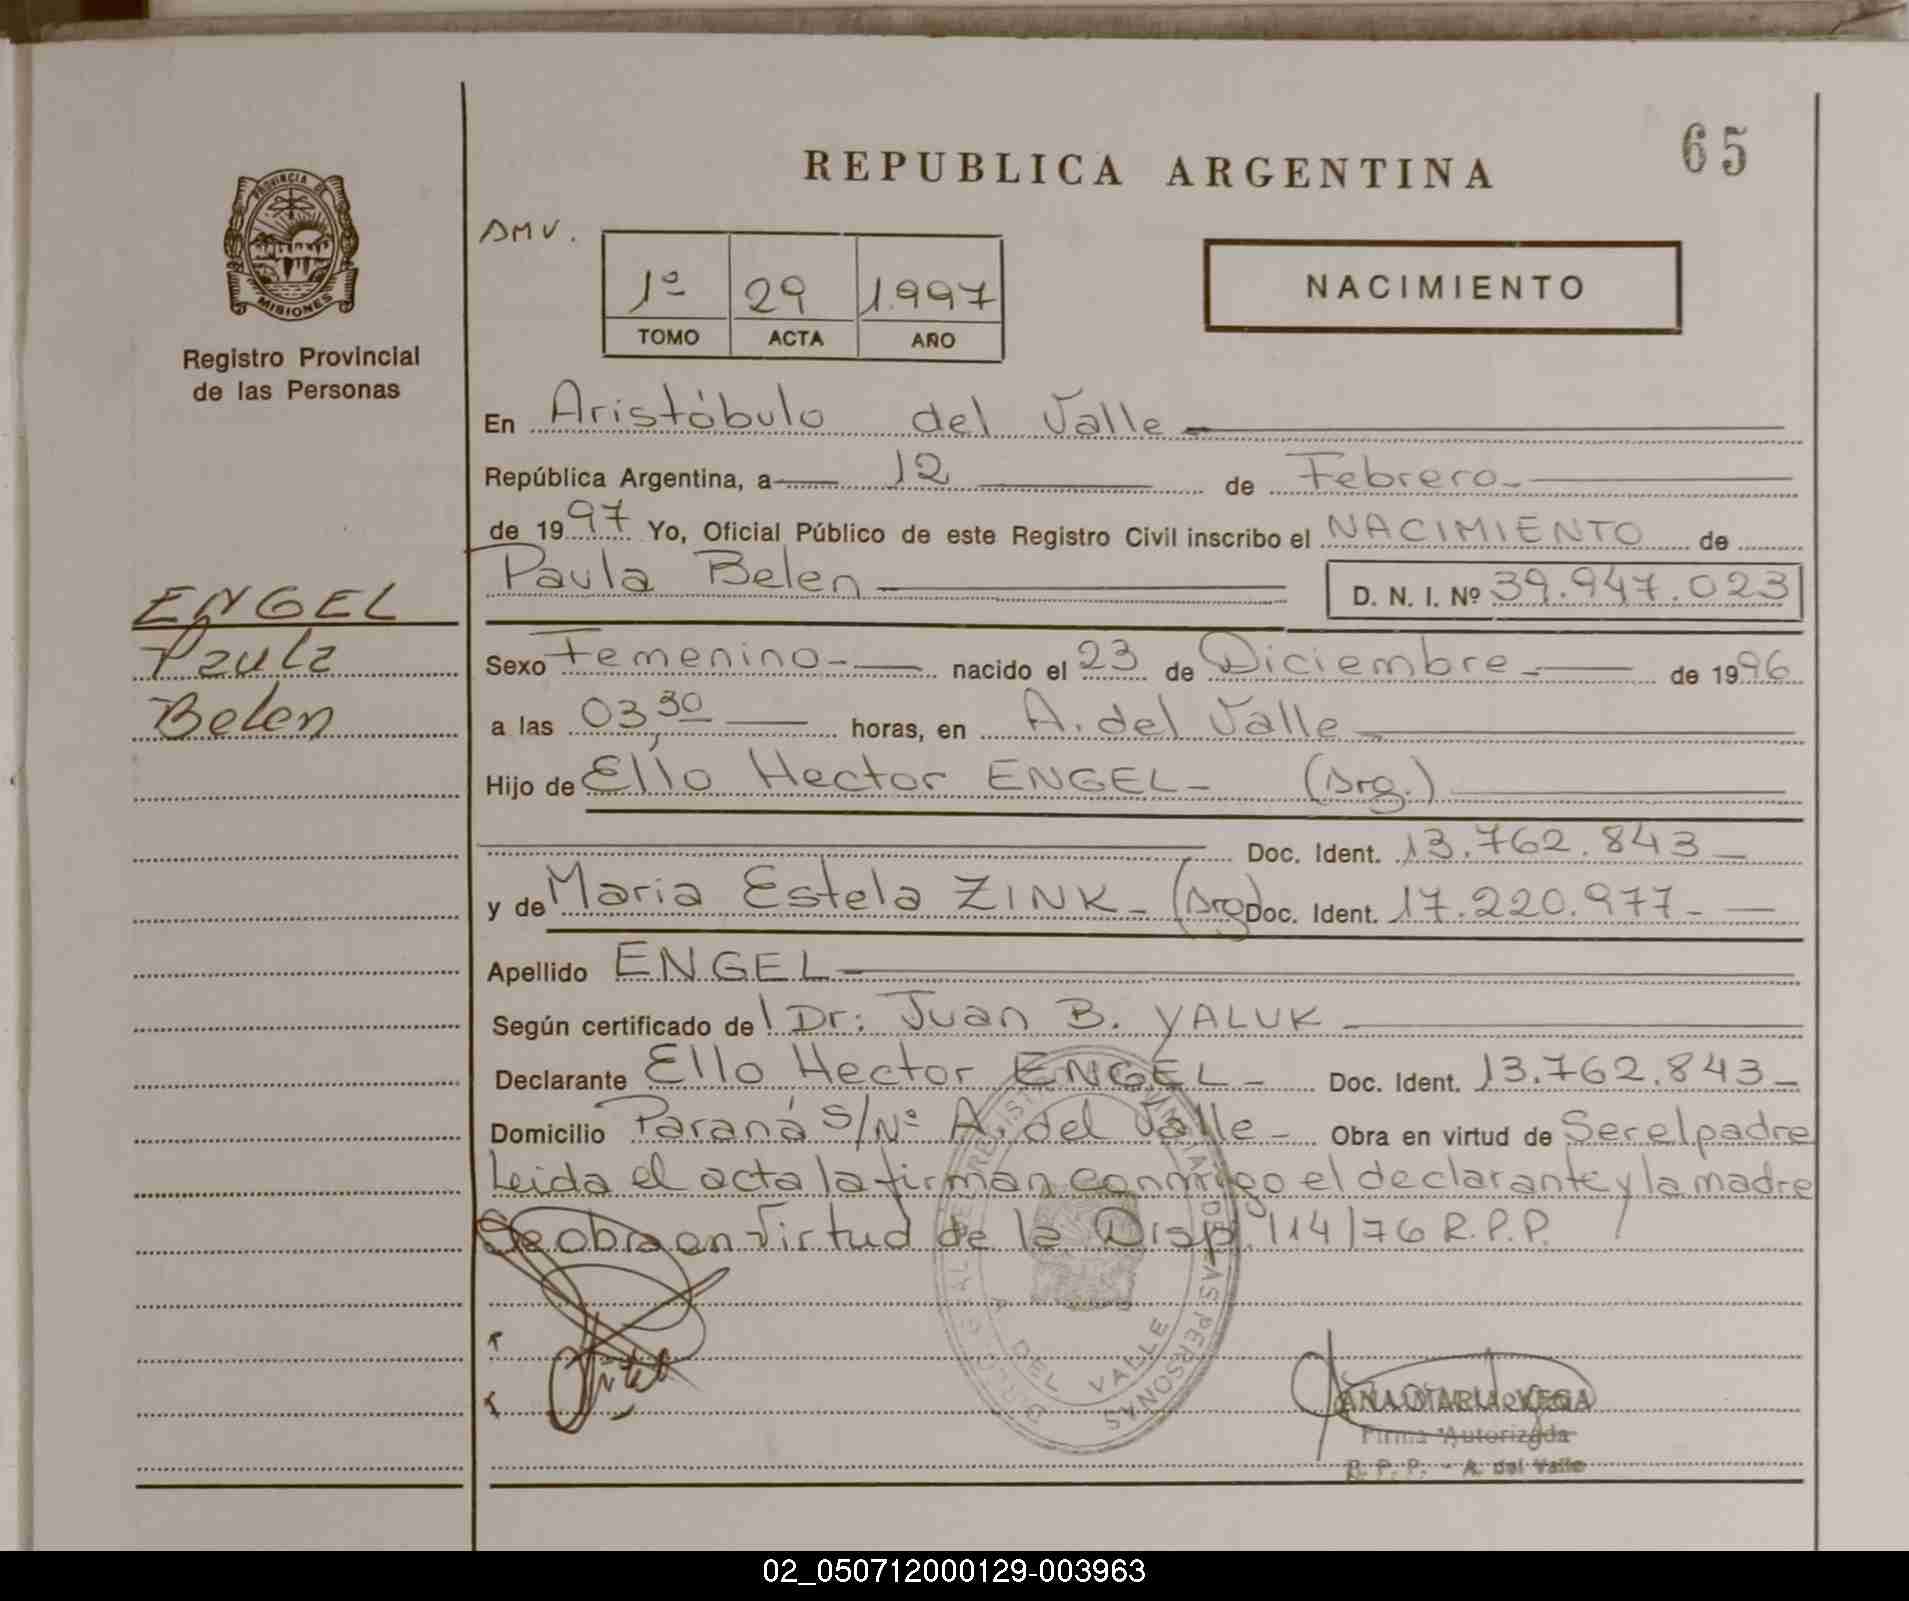 REPUBLICA ARGENTINA
65
PROVINCIA DE
MISIONES
Registro Provincial
de las Personas
AMV.
1º 29 1.997
TOMO ACTA AÑO
NACIMIENTO
En Aristóbulo del Valle
República Argentina, a 12 de Febrero
de 1997 Yo, Oficial Público de este Registro Civil inscribo el NACIMIENTO de
Paula Belen D. N. I. Nº 39.947.023
ENGEL
Paula
Belen
Sexo Femenino nacido el 23 de Diciembre de 1996
a las 03,30 horas, en A. del Valle
Hijo de Ello Hector ENGEL (Arg.)
Doc. Ident. 13.762.843
y de Maria Estela ZINK (Arg) Doc. Ident. 17.220.977
Apellido ENGEL
Según certificado de l Dr: Juan B. YALUK
Declarante Ello Hector ENGEL Doc. Ident. 13.762.843
Domicilio Paraná S/Nº A. del Valle Obra en virtud de Ser el padre
Leida el acta la firman conmigo el declarante y la madre
Se obra en virtud de la Disp. 114/76 R.P.P.
A DEL VALLE
DE LAS PERSONAS
ANA MARIA VEGA
Firma Autorizada
R. P. P. - A. del Valle
02_050712000129-003963